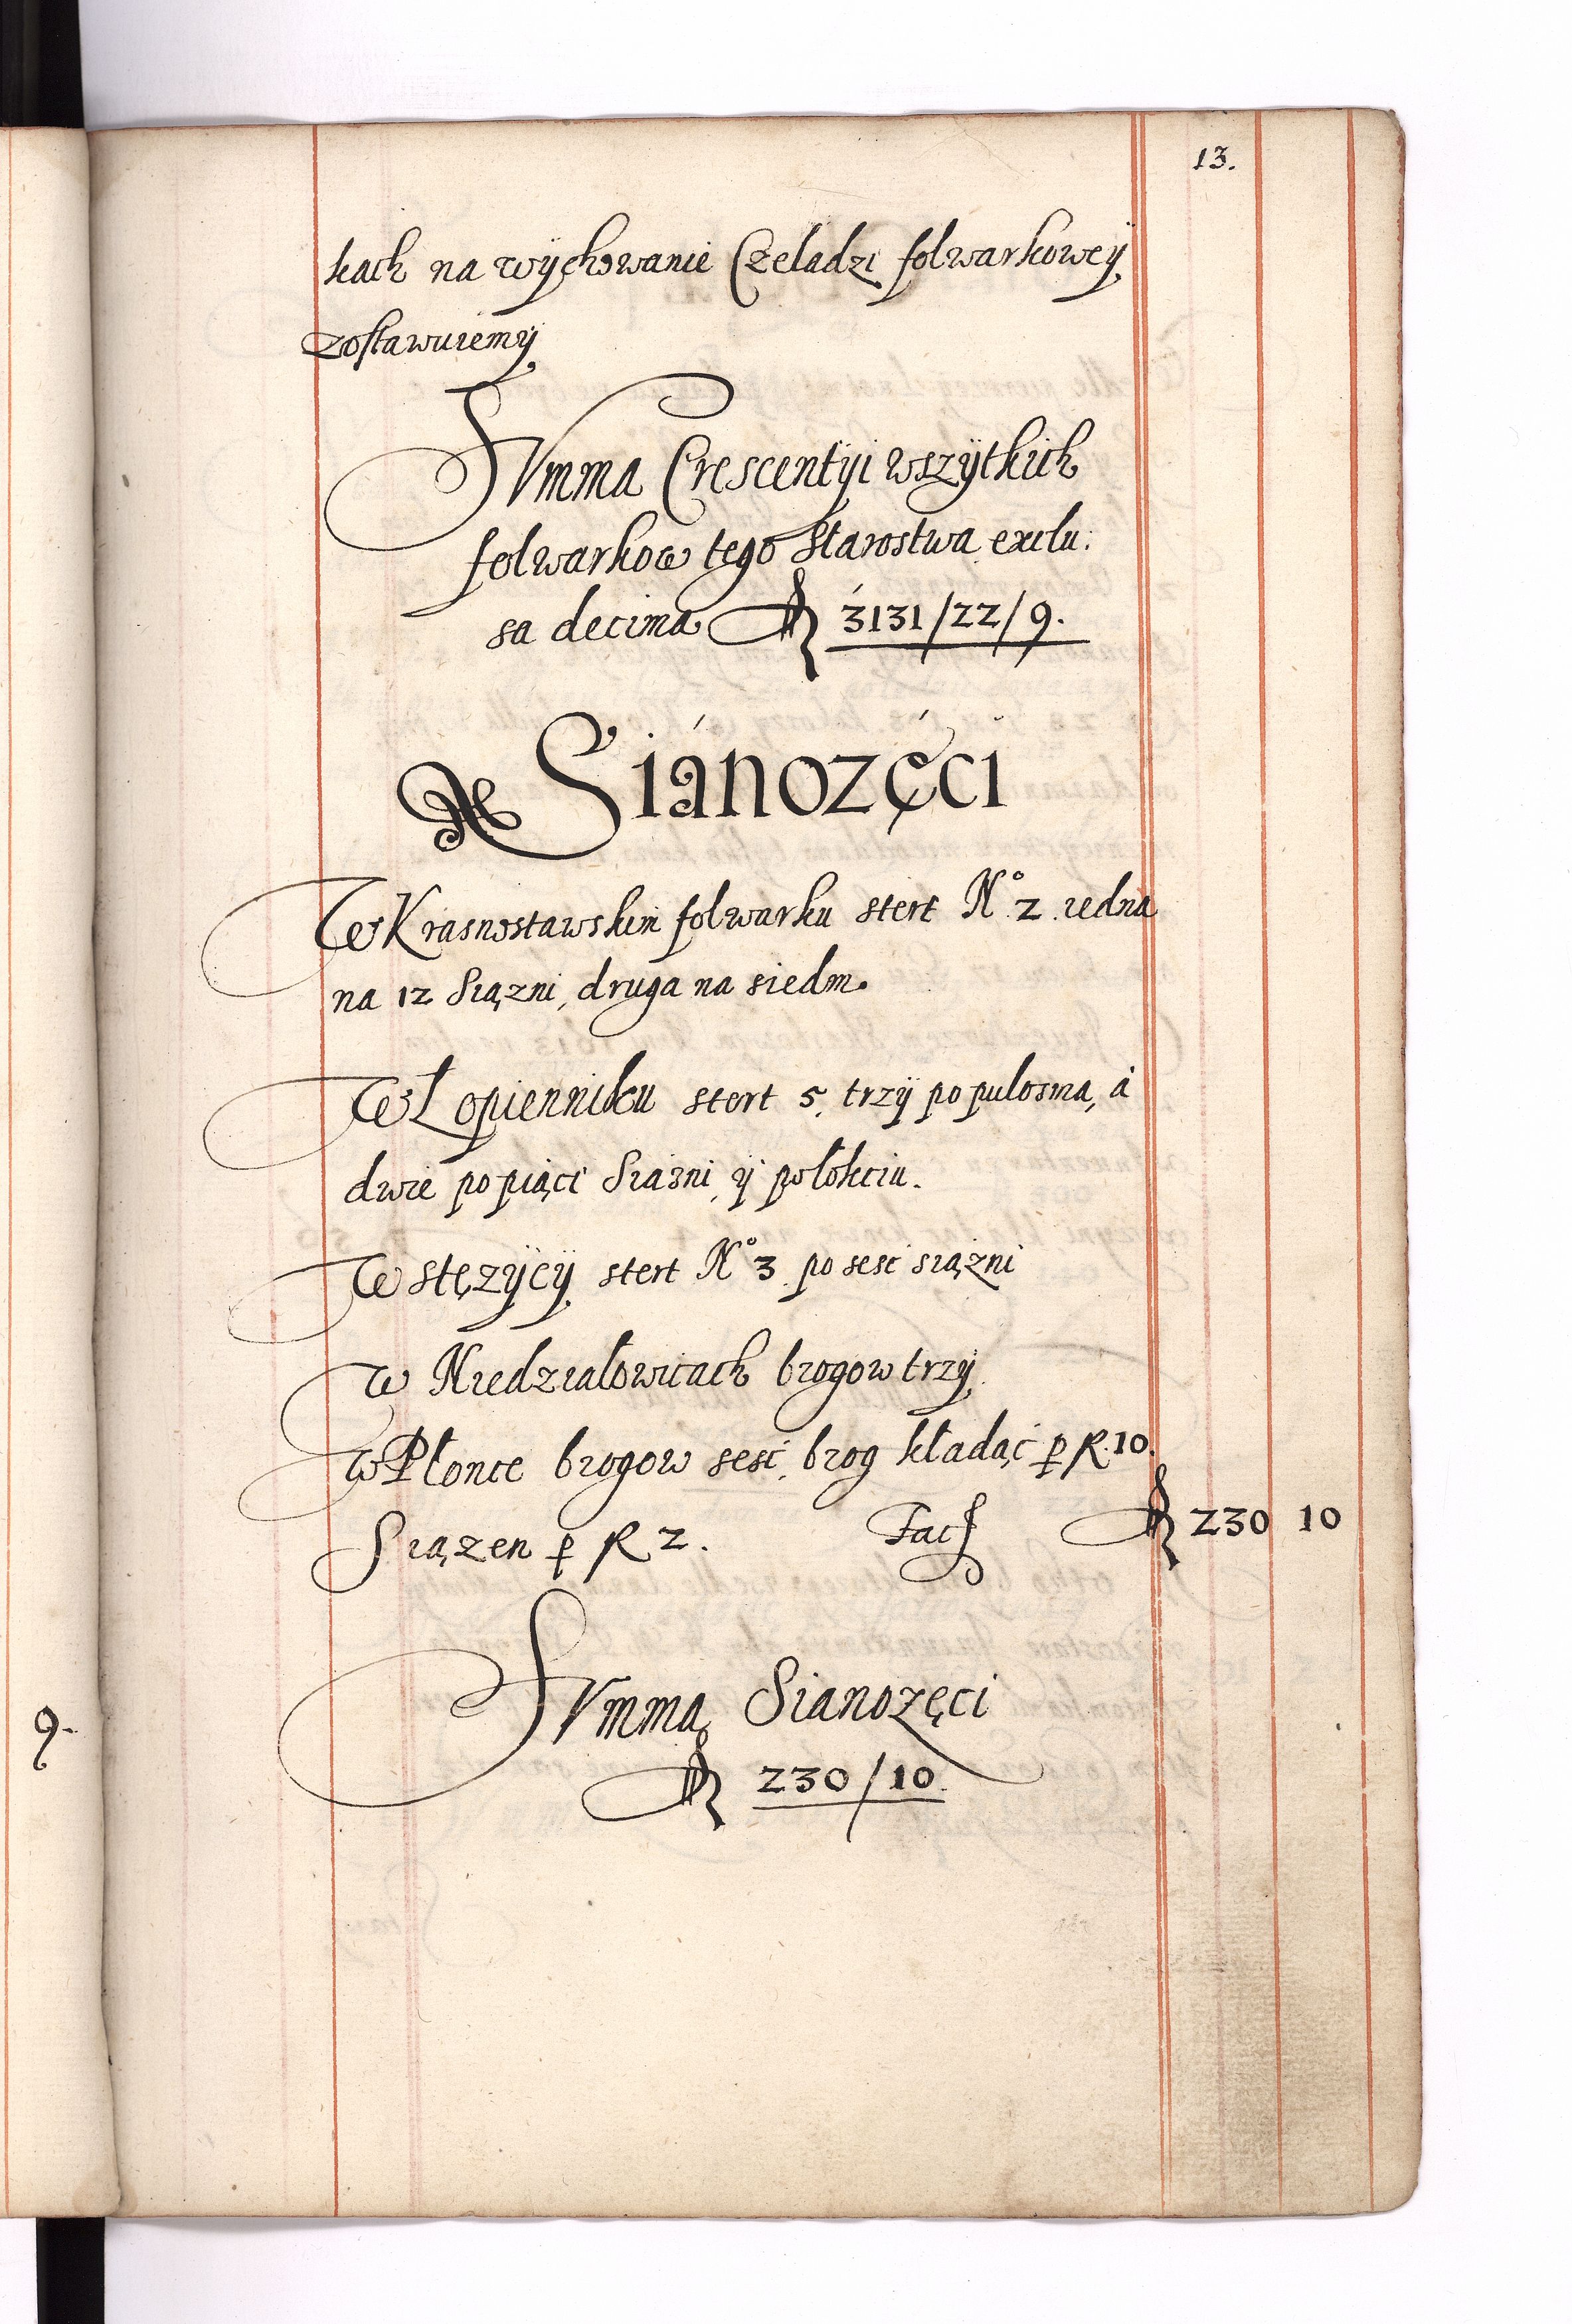 13.
kach na wÿchowanie Czeladzi folwarkoweÿ
zostawuiemÿ
Summa Crescentÿi wszÿtkich
folwarkow tego Starostwa exclu:
sa decima 3131/22/9.
Sianozęci
W Krasnostawskim folwarku stert No 2. iedna
na 12 Siązni, druga na siedm.
W Łopienniku stert 5. trzÿ po pulosma, á
dwie po piąci Siazni, ÿ połokciu.
W stęzÿcÿ stert No 3. po sesc siązni
W Niedziałowicach brogow trzÿ.
W Płonce brogow sesc, brog kładąc p R. 10.
Siązen p R 2. Fac 230 10
Summa Sianozęci
230/10.
9.